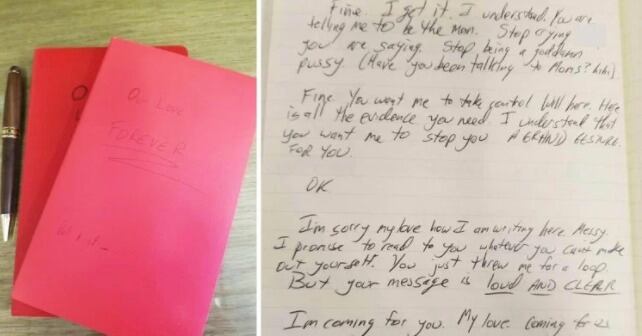 Our Love
FOREVER
Fine. I get it. I understand. You are
telling me to be the man. Stop crying
you are saying. Stop being a goddamn
pussy. (Have you been talking to Moms? haha).
Fine. You want me to take control will here. Here
is all the evidence you need. I understand that
you want me to stop you A GRAND GESTURE.
FOR YOU.
OK
I'm sorry my love how I am writing here. Messy.
I promise to read to you whatever you cant make
out yourself. You just threw me for a loop.
But your message is loud AND CLEAR
I'm coming for you. My love. Coming for us